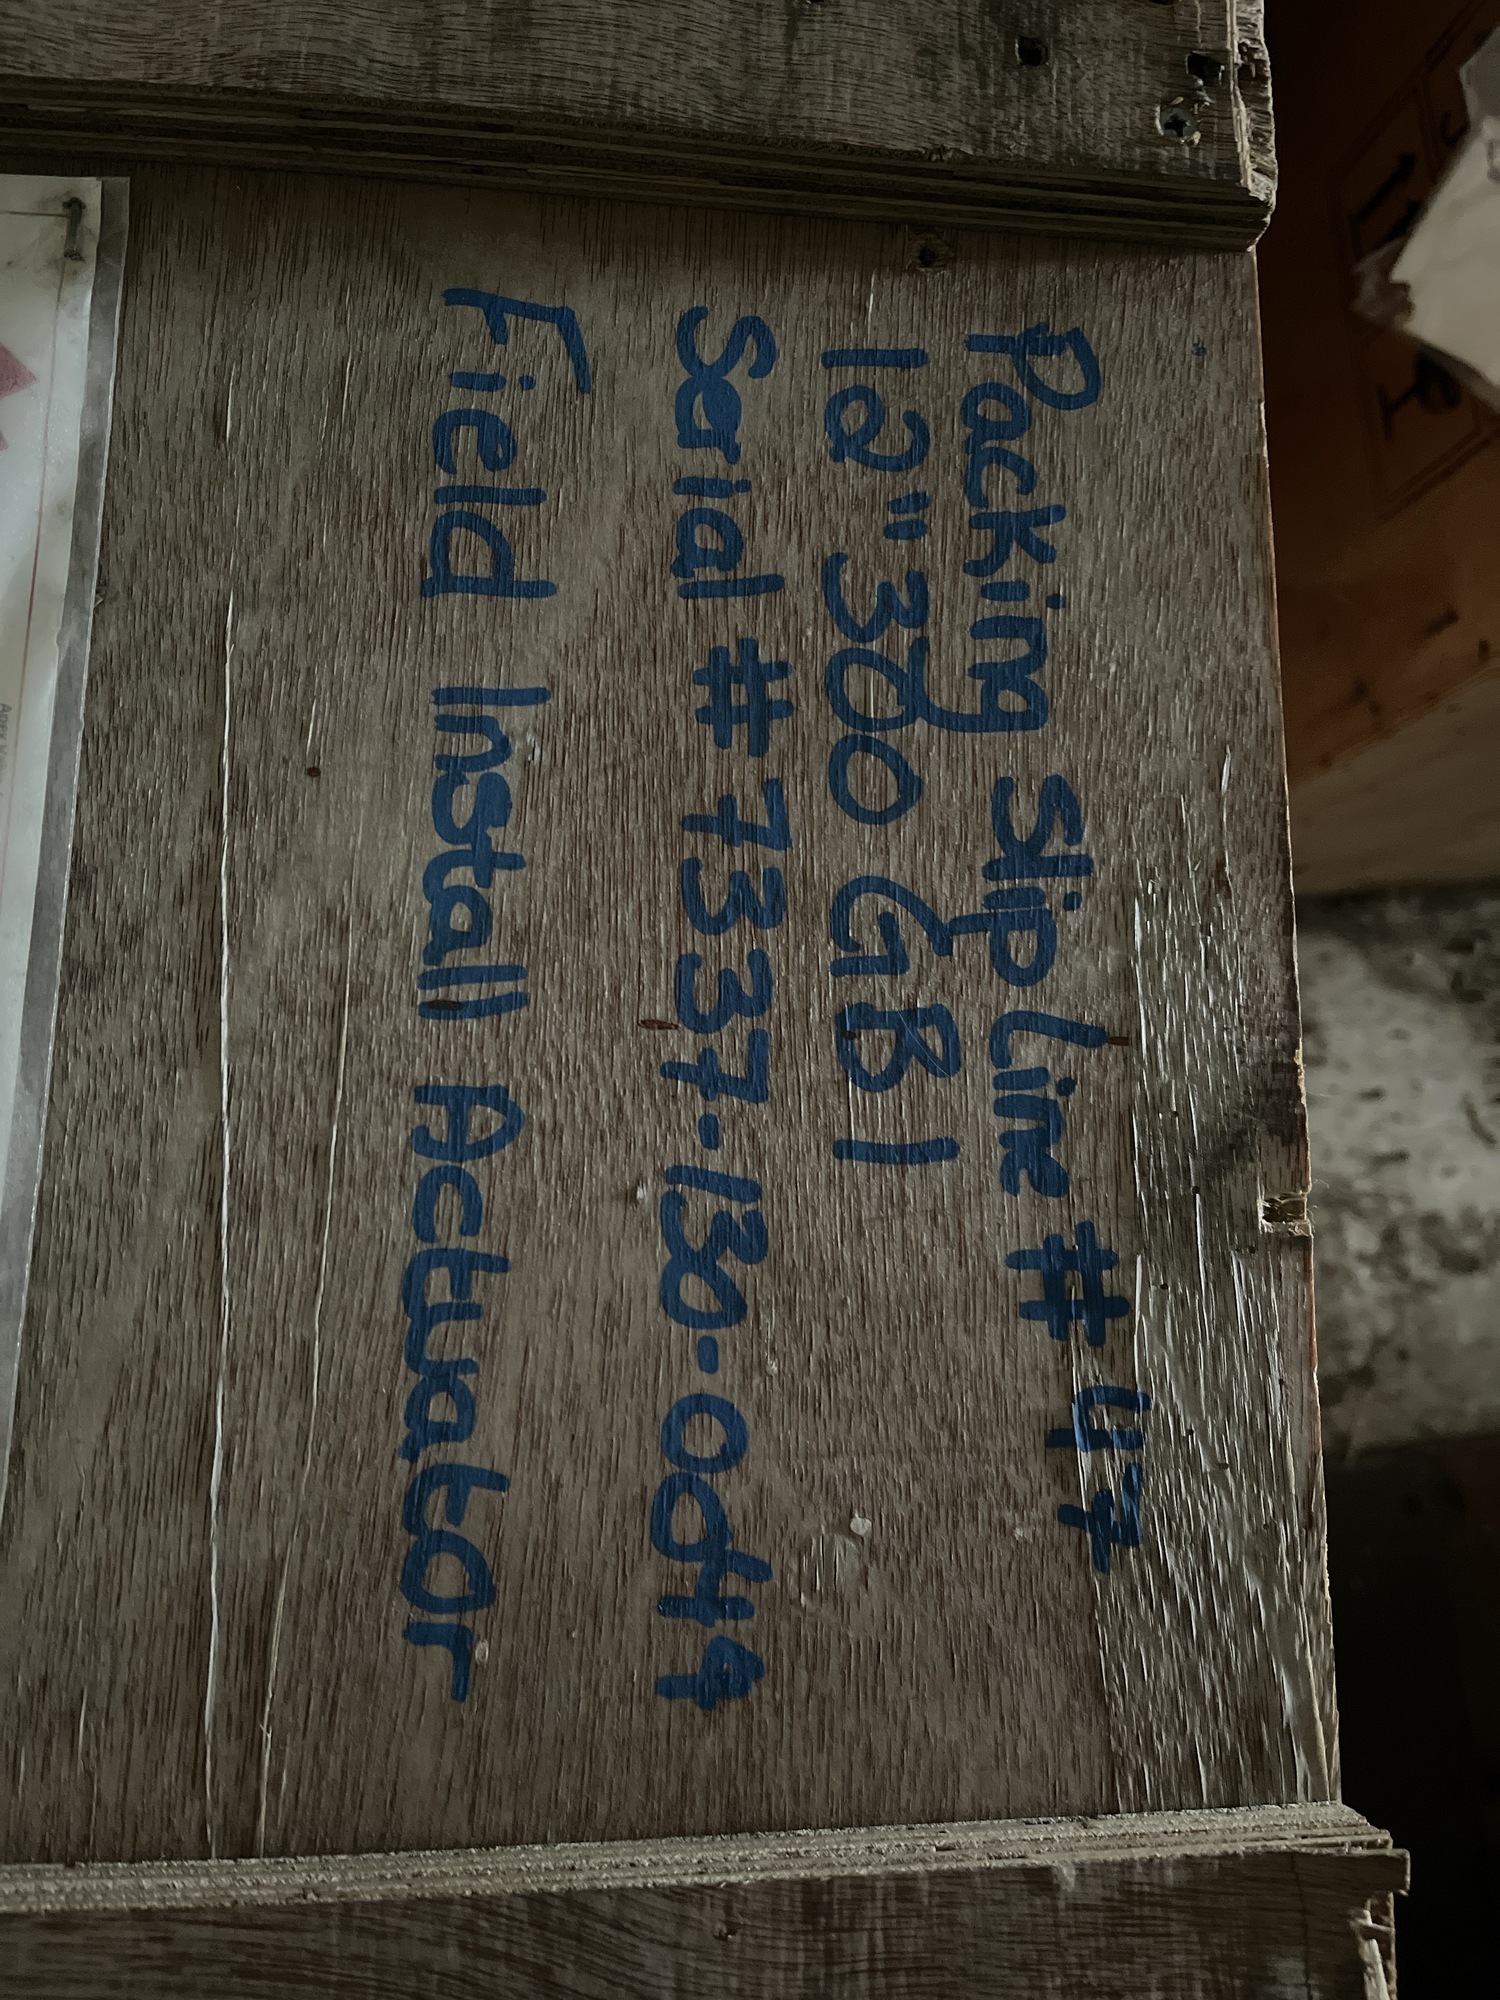 Packing Slip Line # 47
12" 300 GB1
Serial # 7337-130-0044
Field Install Actuator